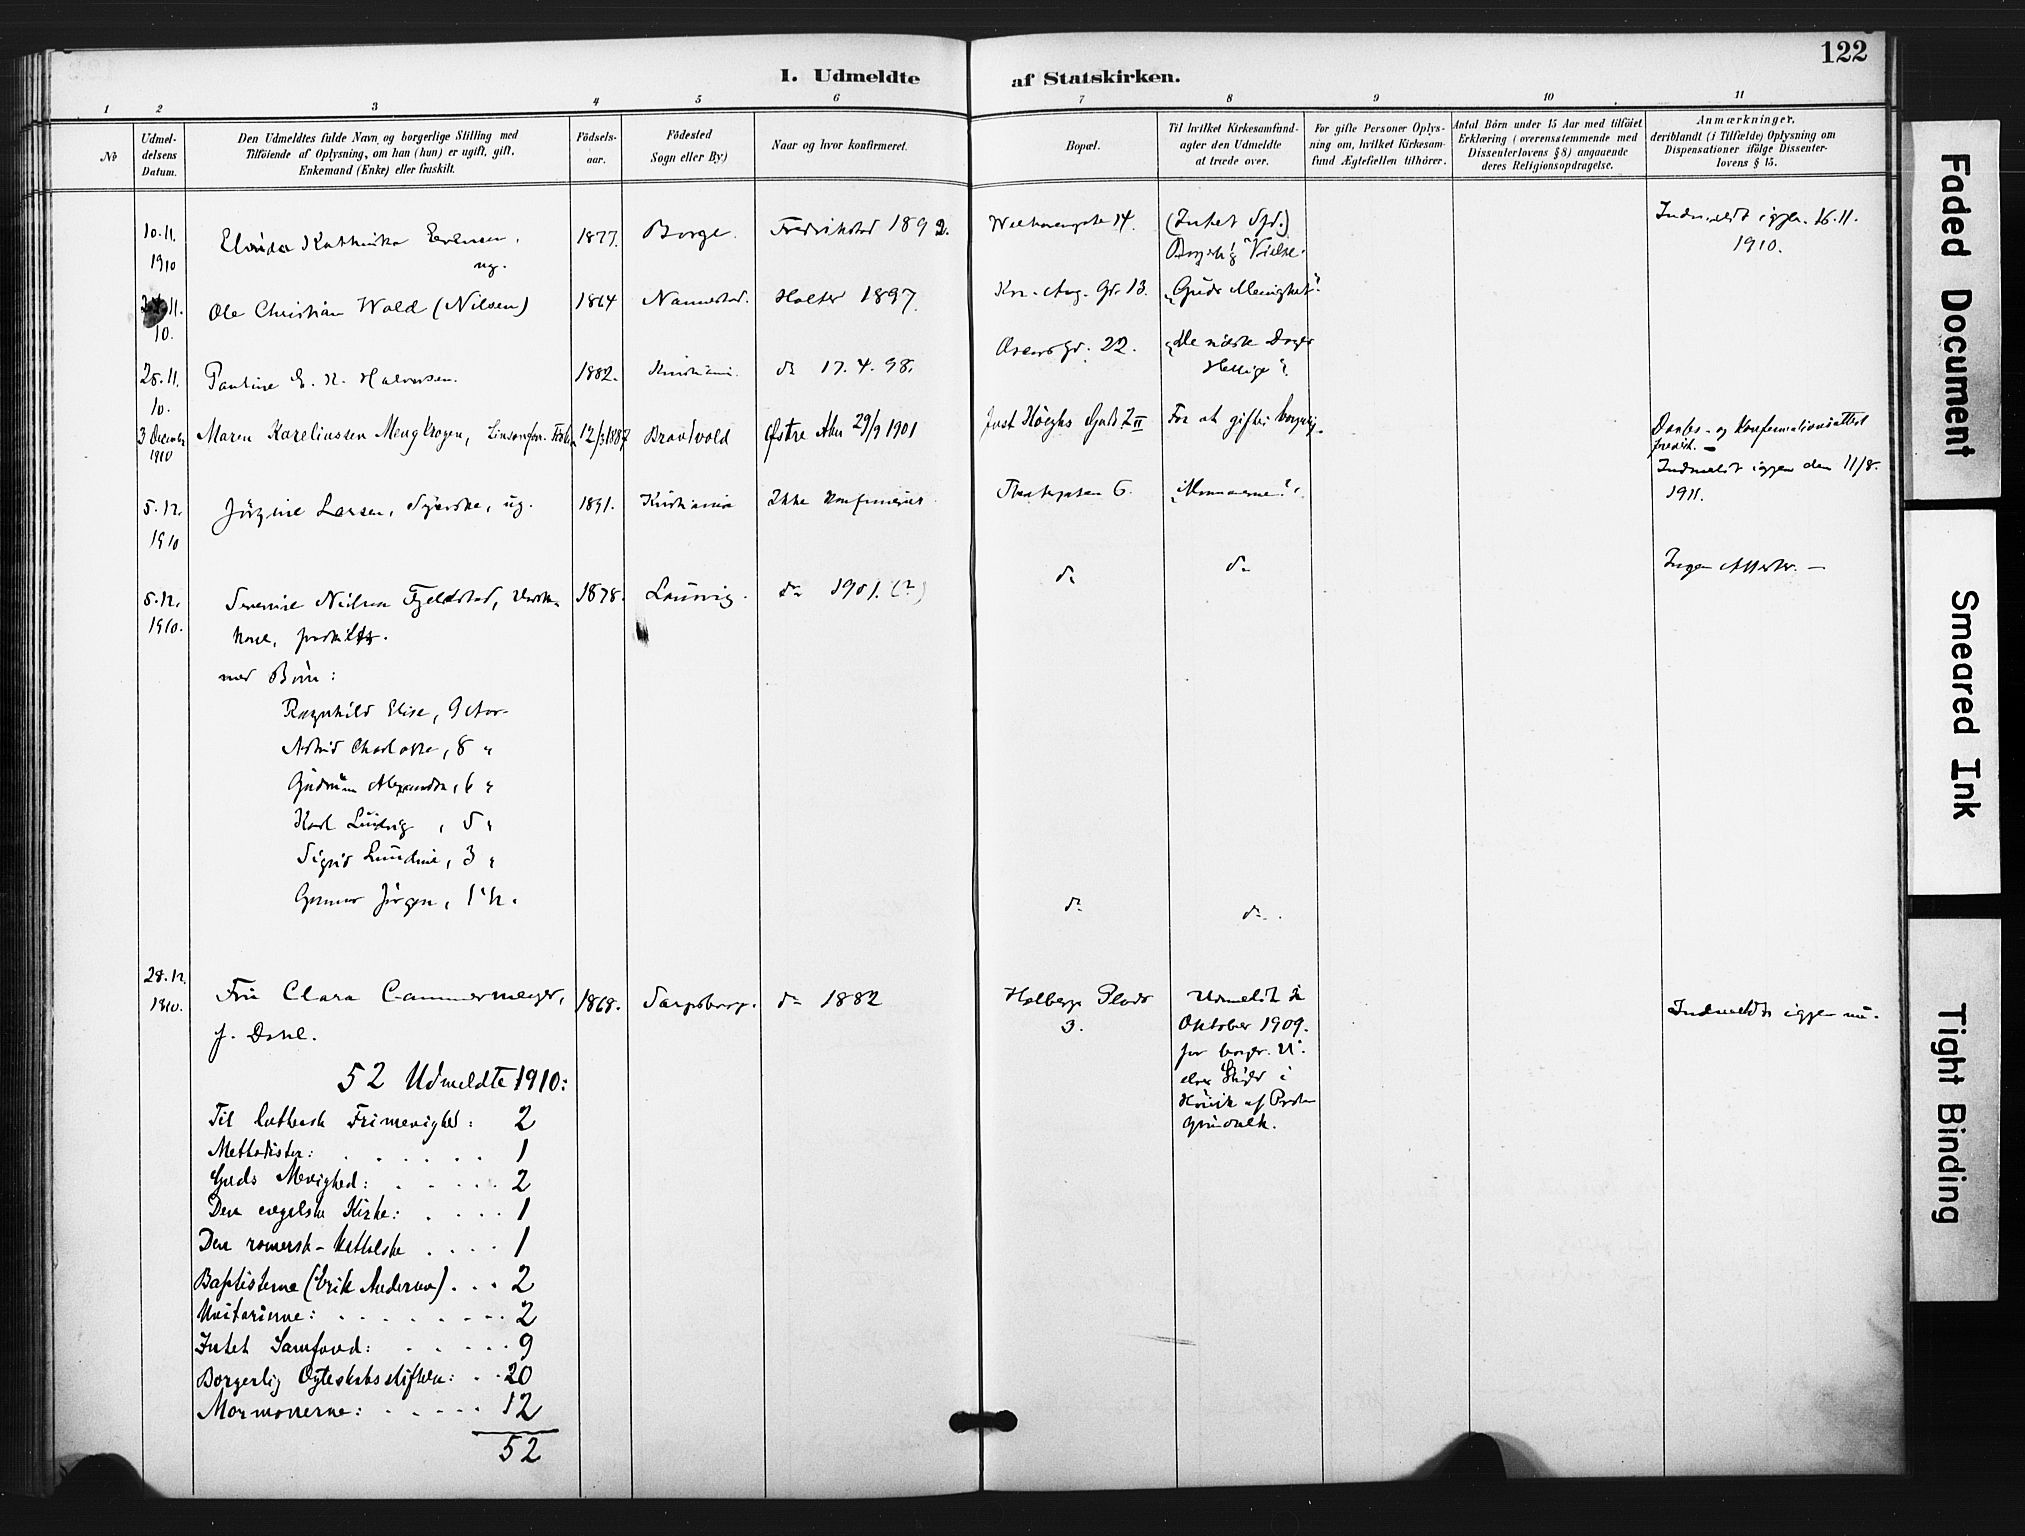 122
I. Udmeldte af Statskirken.
1 2 3 4 5 6 7 8 9 10 11
No
Udmel-
delsens
Datum.
Den Udmeldtes fulde Navn og borgerlige Stilling med
Tilföiende af Oplysning, om han (hun) er ugift, gift,
Enkemand (Enke) eller fraskilt.
Födsels-
aar.
Födested
Sogn eller By.)
Naar og hvor konfirmeret.
Bopæl.
Til hvilket Kirkesamfund-
agter den Udmeldte
at træde over.
For gifte Personer Oplys-
ning om, hvilket Kirkesam-
fund Ægtefællen tilhörer.
Antal Börn under 15 Aar med tilföiet
Erklæring (overensstemmende med
Dissenterlovens § 8) angaaende
deres Religionsopdragelse.
Anmærkninger,
deriblandt (i Tilfælde) Oplysning om
Dispensationer ifölge Dissenter-
lovens § 15.
10.11. 1910 Kathinka ug. 1877. Borge. Fredrikstad 1892. 14. (Intet Sfd.) Borgerlig Vielse. Indmeldt igjen 16.11. 1910.
11. 10. Ole Christian Wold (Nilsen) 1864 Nannestad. Holter 1897. Kr. Aug. Gd. 13. "Guds Menighed".
28.11. 10. Pauline E. N. Halvorsen. 1882. Kristiania. do 17.4.98. Oscars Gd. 22. "De sidste Dages Hellige".
3 December 1910 Maren Kareliussen Mengkrogen, 12/3 1887 Brandvold Østre Aker 29/9 1901 Just Høeghs Gade 7 II For at giftes borgerlig. Daabs- og Konfirmationsattest forevist. –
5.12. 1910 Jörgine Larsen, Syerske, ug. 1891. Kristiania Ikke konfirmeret. Theatergaten 6. "Mormonerne". Indmeldt igjen den 11/8. 1911.
5.12. 1910. Severine Nielsen Fjeldstad, Vaske-
kone, fraskilt. 1878. Laurvig. do 1901. (?) do do Ingen Attester. –
med Börn:
Ragnhild Elise, 9 Aar
Astrid Charlotte, 8 "
Gudrun Alexandra, 6 "
Karl Ludvig, 5 "
Sigrid Lundine, 3 "
Gunnar Jörgen, 1 1/2. do do.
28.12. 1910. Fru Clara Cammermeyer,
f. Dahl. 1868. Sarpsborg. do 1882 Holbergs Plads 3. Udmeldt i
Oktober 1909.
for borger.
i
af
Indmeldt igjen nu.
52 Udmeldte 1910:
Til luthersk Frimenighed: 2
Methodister: . . . . . . 1
Guds Menighed: . . . . . 2
Den engelske Kirke: . . . . 1
Den romersk-katholske . . . . 1
Baptisterne (Erik Andersen) . . . 2
Unitarierne: . . . . . . . . 2
Intet Samfund: . . . . . 9
Borgerlig Ægteskabsstiftelse: . . 20
Mormonerne: . . . . . 12
52
Faded Document
Smeared Ink
Tight Binding